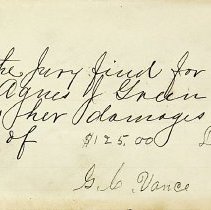 the Jury find for
Agnes J Green
her damages
of $125.00
G. C. Vance